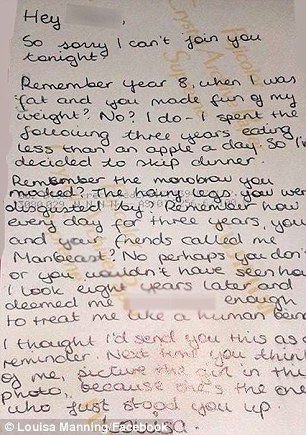 Hey        ,
So sorry I can't join you
tonight
Remember Year 8, when I was
fat and you made fun of my
weight? No? I do - I spent the
following three years eating
less than an apple a day. So I
decided to skip dinner.
Remember the monobrow you
mocked? The hairy legs you we
disgusted by? Remember how
every day for three years, you
and your friends called me
Manbeast? No perhaps you don'
or you wouldn't have seen how
I look eight years later and
deemed me enough
to treat me like a human bein
I thought I'd send you this as a
reminder. Next time you think
of me, picture the girl in this
photo, because she's the one
who just stood you up.
© Louisa Manning/Facebook